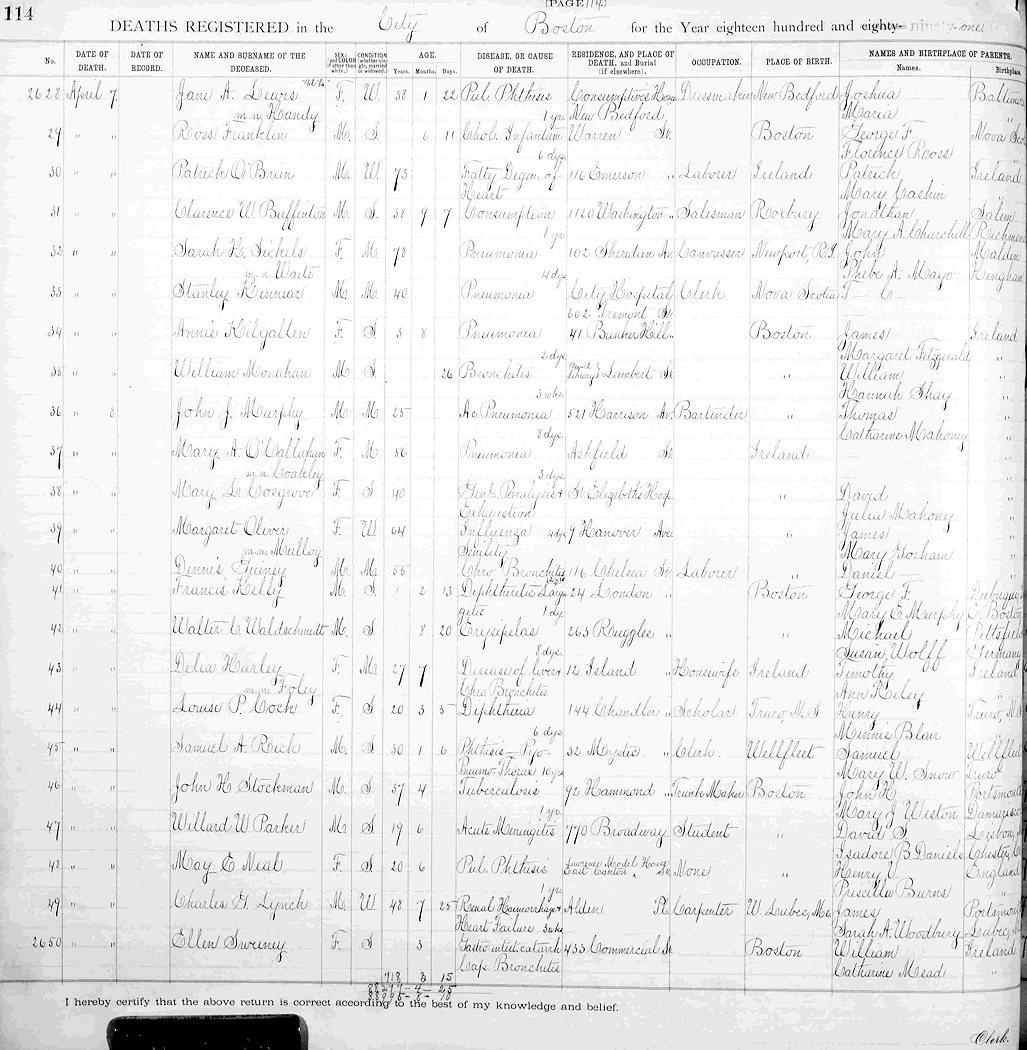 114
(PAGE 114)
DEATHS REGISTERED in the City of Boston for the Year eighteen hundred and eighty- ninety-one
No. DATE OF DEATH. DATE OF RECORD. NAME AND SURNAME OF THE DECEASED. SEX; (and COLOR if other than white.) CONDITION (whether single, married or widowed.) AGE. Years. Months. Days. DISEASE, OR CAUSE OF DEATH. RESIDENCE, AND PLACE OF DEATH, and Burial (if elsewhere). OCCUPATION. PLACE OF BIRTH. NAMES AND BIRTHPLACE OF PARENTS. Names. Birthplace.
2628 April 7 Jane A. Lewis F. W. 38 1 22 Pul. Phthisis Consumptives Home Dressmaker New Bedford Joshua Baltimore
m.n. Handy 1 yr. New Bedford Maria "
29 " " Ross Franklin M. S. 6 11 Chol. Infantum Warren St. Boston George F. Nova Sco
6 dys. Florence Ross "
30 " " Patrick O'Brien M. W. 73 Fatty Degen. of 116 Emerson " Laborer Ireland Patrick Ireland
Heart Mary Caskin "
31 " " Clarence W. Buffinton M. S. 38 9 7 Consumption 1120 Washington " Salesman Roxbury Jonathan Salem
1 yr. Mary A. Churchill Richmon
32 " " Sarah H. Sickels F. M. 78 Pneumonia 102 Sheridan Av. Canvasser Newport, R.I. John Malden
m.n. Waite 4 dys. Phebe A. Mayo Hingham
33 " " Stanley Kinnear M. M. 40 Pneumonia City Hospital Clerk Nova Scotia T— C—
602 Tremont St.
34 " " Annie Kilgallen F. S. 3 8 Pneumonia 41 Bunker Hill " Boston James Ireland
2 dys. Margaret Fitzgerald "
35 " " William Monahan M. S. 26 Bronchitis Lambert St. " William "
3 wks. Hannah Shay "
36 " 8 John J. Murphy M. M. 25 Ac. Pneumonia 521 Harrison Av. Bartender " Thomas "
8 dys. Catharine Mahoney "
37 " " Mary A. O'Callahan F. M. 56 Pneumonia Ashfield St. Ireland
m.n. Coakley 3 dys.
38 " " Mary L. Cosgrove F. S. 40 Genl. Paralysis + St. Elizabeth's Hosp. " David "
Exhaustion Julia Mahony "
39 " " Margaret Oliver F. W. 64 Influenza 4 dys. 9 Hanover Ave. " James "
m.n. Mulloy Senility Mary Gorham "
40 " " Dennis Guiney M. M. 55 Chro. Bronchitis 116 Chelsea St. Laborer " Daniel — "
41 " " Francis Kelly M. S. 1 2 13 Diphtheritic Laryn- 24 London " Boston George F. Dubuque
gitis 1 dy. Mary E. Murphy E. Boston
42 " " Walter C. Waldschmidt M. S. 8 20 Erysipelas 263 Ruggles " " Michael Pittsfield
8 dys. Susan Wolff Germany
43 " " Delia Hurley F. M. 27 7 Disease of liver + 12 Island " Housewife Ireland Timothy Ireland
m.n. Foley Chro. Bronchitis Ann Riley "
44 " " Louise P. Cock F. S. 20 3 5 Diphtheria 144 Chandler " Scholar Truro, N.S. Henry Truro, N.S
6 dys. Minnie Blair "
45 " " Samuel A. Rich M. S. 30 1 6 Phthisis—Pyo- 32 Mystic " Clerk Wellfleet Samuel Wellfleet
Pneumo-Thorax Mary W. Snow Truro
46 " " John H. Stockman M. S. 37 4 Tuberculous 92 Hammond " Trunk Maker Boston John H. Portsmouth
1 yr. Mary J. Weston Damarisco
47 " " Willard W. Parker M. S. 19 6 Acute Meningitis 770 Broadway Student " David S. Lisbon,
Isadore B. Daniels Chester,
48 " " May E. Neal F. S. 20 6 Pul. Phthisis Lawrence Model House None " Henry England
East Canton St.
1 yr. Priscilla Burns "
49 " " Charles G. Lynch M. W. 48 7 25 Renal Haemorrhage + Alden Pl. Carpenter W. Lubec, Me. James Portsmouth
Heart Failure 3 wks Sarah A. Woodbury Lubec,
2650 " " Ellen Sweeney F. S. 3 Gastro intest. catarrh 433 Commercial St. Boston William Ireland
Cap. Bronchitis Catharine Mead "
718 3 15
I hereby certify that the above return is correct according to the best of my knowledge and belief.
Clerk.